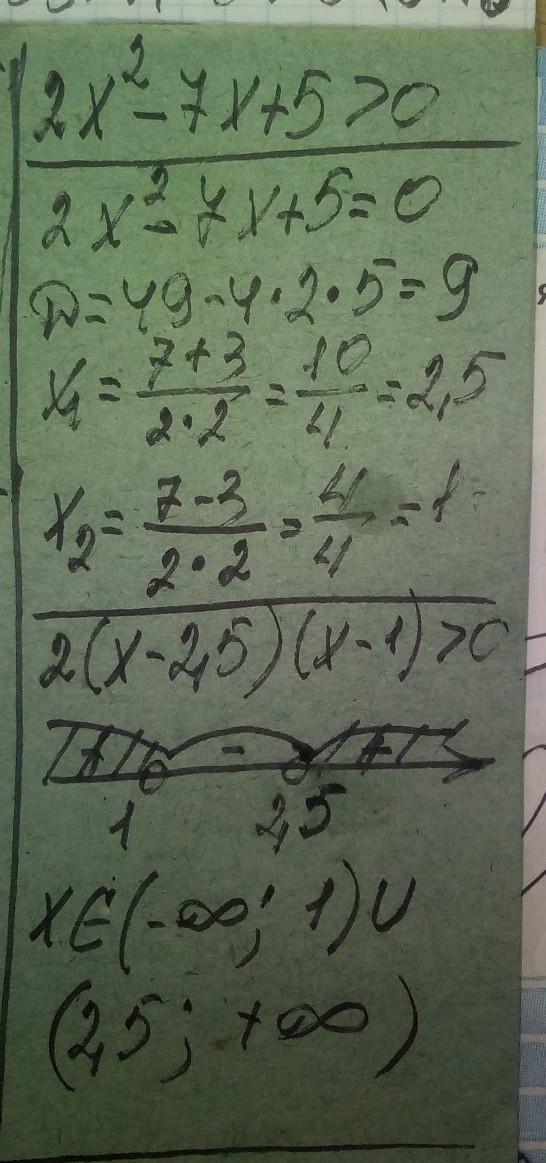 2x² - 7x + 5 > 0
2x² - 7x + 5 = 0
D = 49 - 4·2·5 = 9
x₁ = (7+3)/(2·2) = 10/4 = 2,5
x₂ = (7-3)/(2·2) = 4/4 = 1
2(x - 2,5)(x - 1) > 0
+ - +
1 2,5
x∈(-∞; 1)∪
(2,5; +∞)